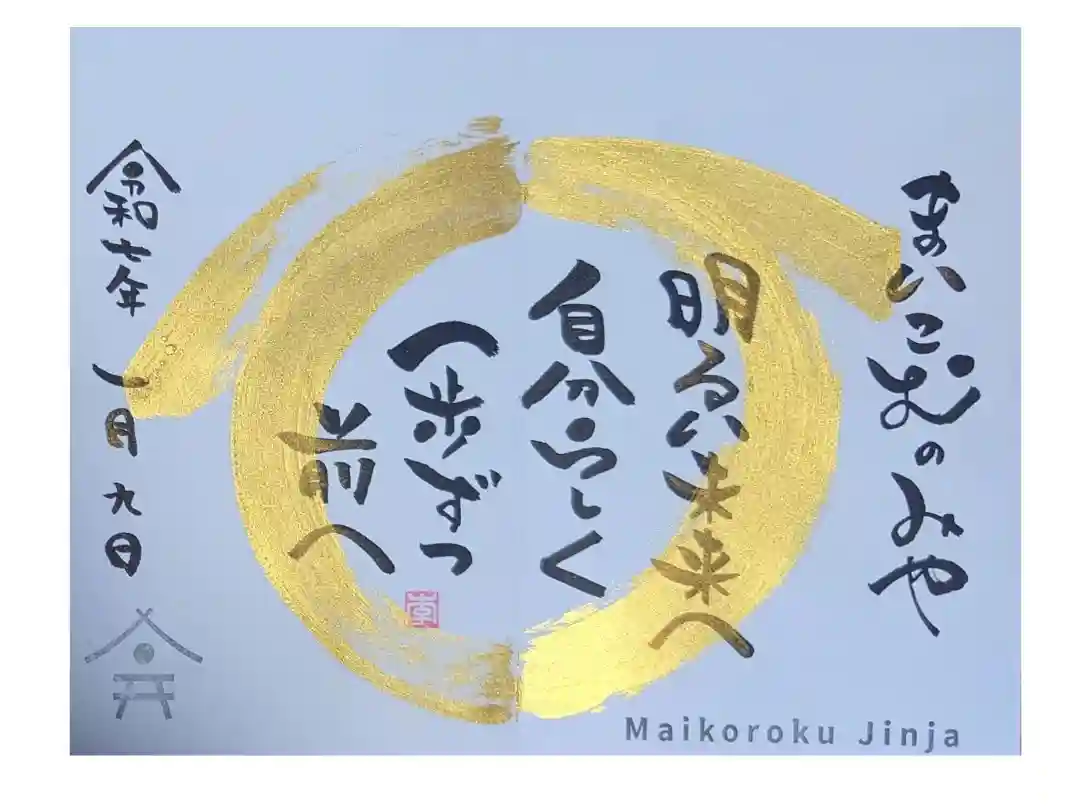 まいこむのみや
明るい未来へ
自分らしく
一歩ずつ
前へ
令和七年
一月九日
Maikoroku Jinja